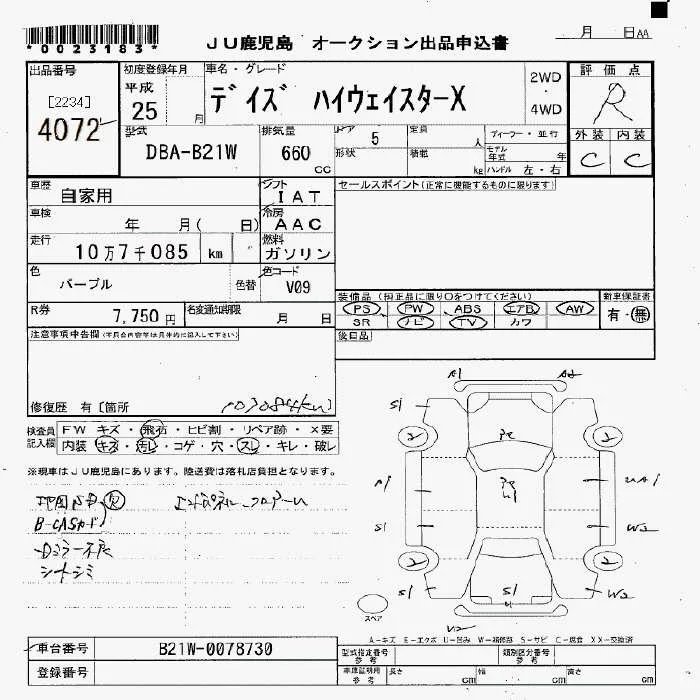 *0023183*
JU鹿児島 オークション出品申込書
月 日AA
出品番号
[2234]
4072
初度登録年月
平成
25 月
車名・グレード
デイズ ハイウェイスターX
2WD
・
4WD
評価点
R
外装 内装
C C
型式
DBA-B21W
排気量
660
cc
ドア 5
形状
定員 人
積載 kg
ディーラー・並行
モデル年式 年
ハンドル 左・右
車歴
自家用
シフト
IAT
セールスポイント(正常に機能するものに限ります)
車検
年 月( 日)
冷房
AAC
走行
10万7千085 km
燃料
ガソリン
色
パープル
色替
色コード
V09
装備品(純正品に限り○をつけてください)
PS PW ABS エアB AW
SR ナビ TV カワ
新車保証書
有・無
R券
7,750 円
名変通知期限
月 日
後日品
注意事項申告欄(不具合内容等は具体的に記入して下さい)
修復歴 有〔箇所
107084km
検査員
記入欄
FW キズ・飛石・ヒビ割・リペア跡・×要
内装 キズ・汚レ・コゲ・穴・スレ・キレ・破レ
※現車はJU鹿児島にあります。陸送費は落札店負担となります。
B-CASカード
シートシミ
A1 A2
S1
2 2
A1 UA1
S1 W2
2 2
S1 S1 W2
スペア
A-キズ E-エクボ U-凹み W-補修跡 S-サビ C-腐食 XX-交換済
車台番号
B21W-0078730
登録番号
型式指定番号
参考
類別区分番号
参考
車庫証明用
参考
長さ cm
幅 cm
高さ cm